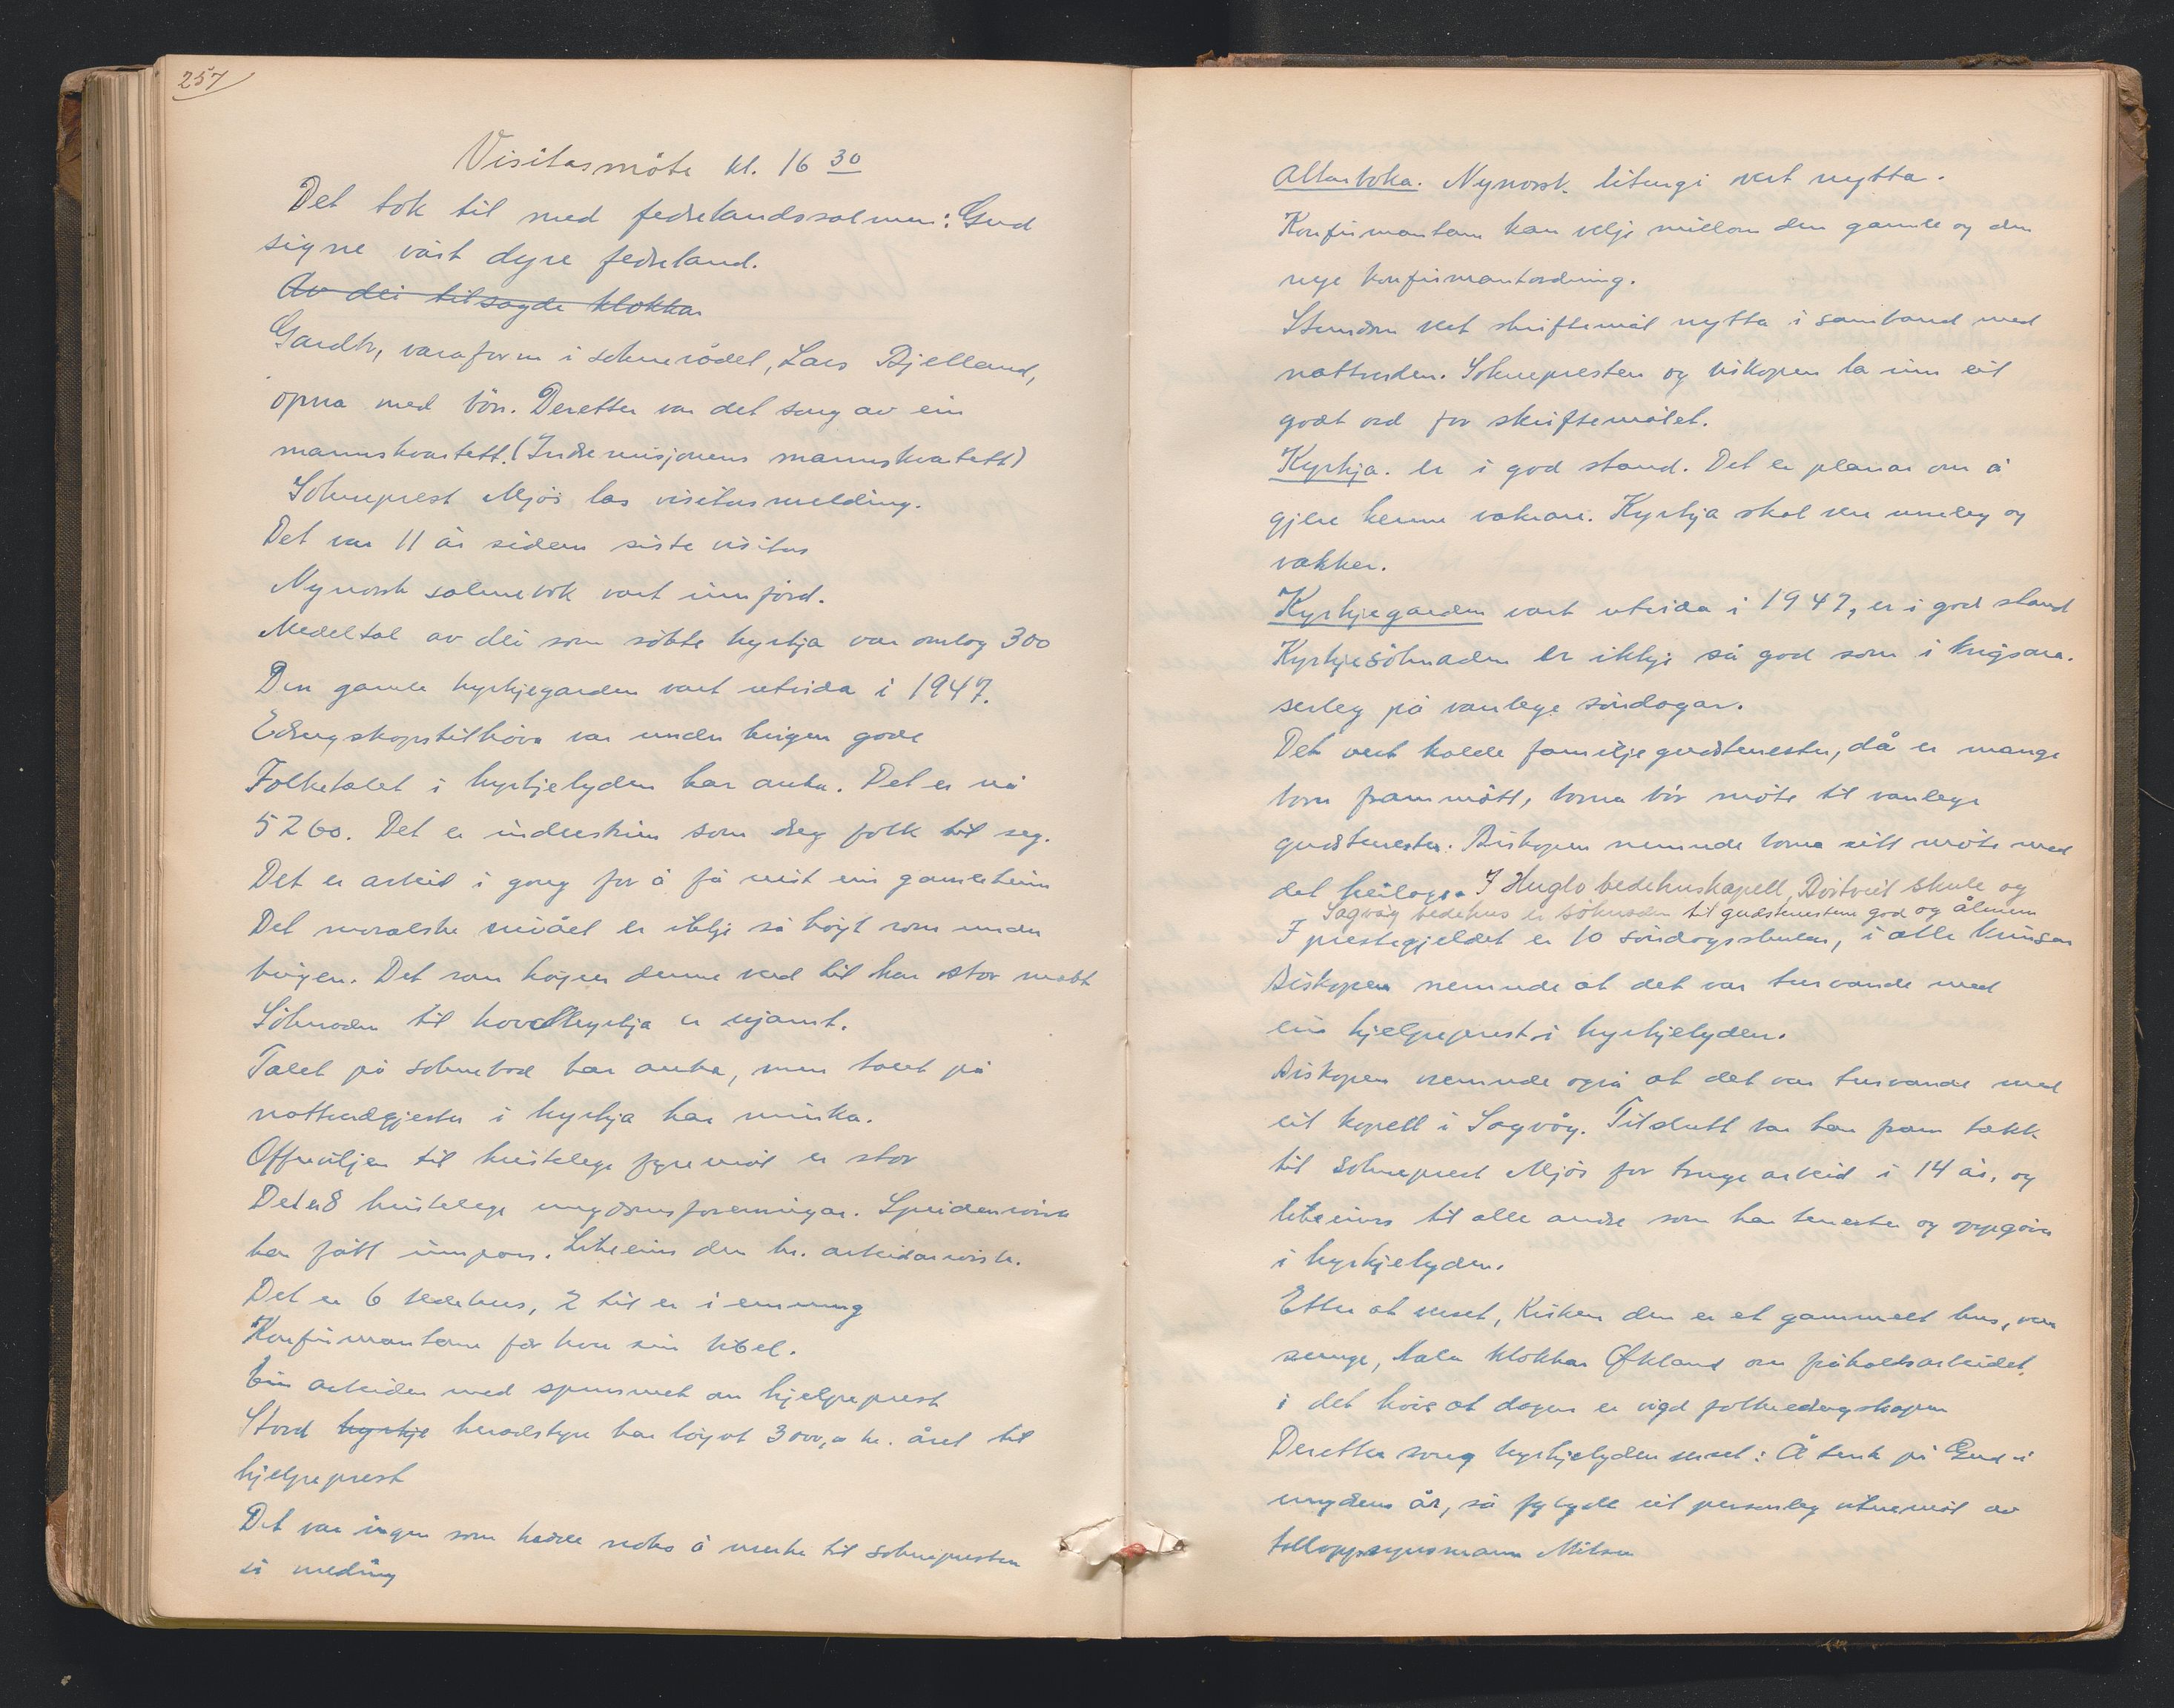 257
Visitasmöte kl. 16 30
Det tok til med fedrelandssalmen: Gud
signe vårt dyre fedreland.
Av dei tilsagde klokkar
Gardbr, varaform i sokneråded, Lars Bjelland,
opna med bön. Deretter var det song av ein
mannskvartett. (Indremisjonens mannskvartett)
Sokneprest Mjös las visitasmelding.
Det var 11 år sidem siste visitas
Nynorsk salmebok vart innförd.
Medeltal av dei som sökte kyrkja var omlag 300
Den gamle kyrkjegarden vart utvida i 1947.
Edrugskapstilhöva var under krigen gode
Folketalet i kyrkjelyden har auka. Det er nå
5260. Det er industrien som dreg folk til seg.
Det er arbeid i gong for å få reist ein gamleheim
Det moralske nivået er ikkje så högt som under
krigen. Det som höyrer denne verd til har stor makt
Söknaden til hovedkyrkja er ujamt.
Talet på soknebod har auka, men talet på
nattverdgjester i kyrkja har minka.
Offerviljen til kristelege fyremål er stor
Det er 8 kristelege ungdomsforeningar. Speidarrörsla
har fått innpass. Likeeins den kr. arbeidarrörsla.
Det er 6 bedehus, 2 til er i emning
Konfirmantane får kvar sin bibel.
Ein arbeider med spursmet om hjelpeprest
Stord kyrkje heradstyre har löyvt 3000,- kr. året til
hjelpeprest
Det var ingen som hadde noko å merke til soknepresten
si melding
Altarboka. Nynorsk liturgi vert nytta.
Konfirmantane kan velje millom den gamle og den
nye konfirmantordning.
Stundom vert skriftemål nytta i samband med
nattverden. Soknepresten og biskopen la inn eit
godt ord for skriftemålet.
Kyrkja. er i god stand. Det er planar om å
gjere henne vakrare. Kyrkja skal vere umeleg og
vakker.
Kyrkjegarden vart utvida i 1947, er i god stand
Kyrkjesöknaden er ikkje så god som i krigsåra.
serleg på vanlege söndagar.
Det vert halde familjegudstenester, då er mange
born frammött, borna bör möte til vanlege
gudstenester. Biskopen nemnde borna sitt möte med
det heilage. I Huglo bedehuskapell, Börtveit skule og
Sagvåg bedehus er söknaden til gudstenestene god og ålmenn
I prestegjeldet er 10 söndagsskular, i alle krinsar
Biskopen nemnde at det var turvande med
ein hjelpeprest i kyrkjelyden.
Biskopen nemnde også at det var turvande med
eit kapell i Sagvåg. Tilslutt bar han fram takk
til sokneprest Mjös for truge arbeid i 14 år, og
likeeins til alle andre som har tenester og oppgåver
i kyrkjelyden.
Etter at verset, Kirken den er et gammelt hus, var
sunge, tala klokkar Økland om fråhaldsarbeidet,
i det höve at dagen er vigd folkeedrugskapen
Deretter song kyrkjelyden verset: Å tenk på Gud i
ungdoms år, så fylgde eit personleg vitnemål av
tolloppsynsmann Nilsen